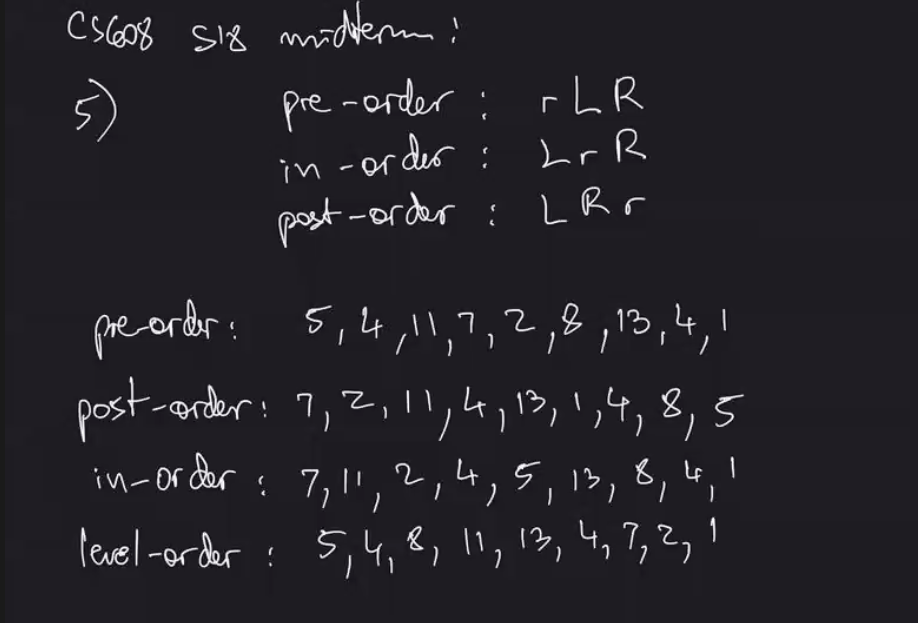 CS608 S18 midterm:
5) pre-order : r L R
in-order : L r R
post-order : L R r
pre-order: 5, 4, 11, 7, 2, 8, 13, 4, 1
post-order: 7, 2, 11, 4, 13, 1, 4, 8, 5
in-order : 7, 11, 2, 4, 5, 13, 8, 4, 1
level-order : 5, 4, 8, 11, 13, 4, 7, 2, 1